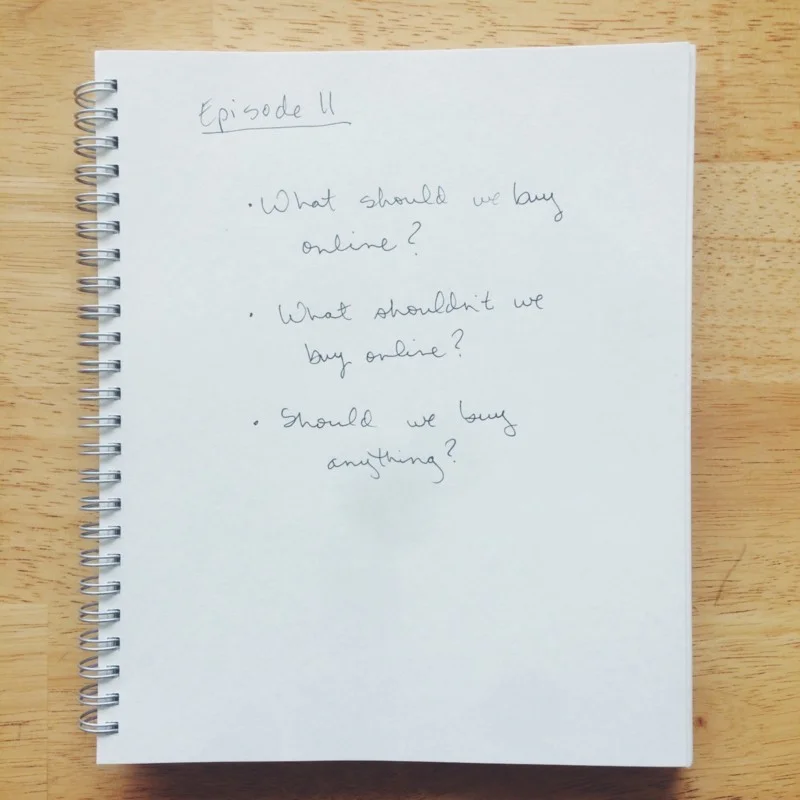 Episode 11
• What should we buy
online?
• What shouldn't we
buy online?
• Should we buy
anything?